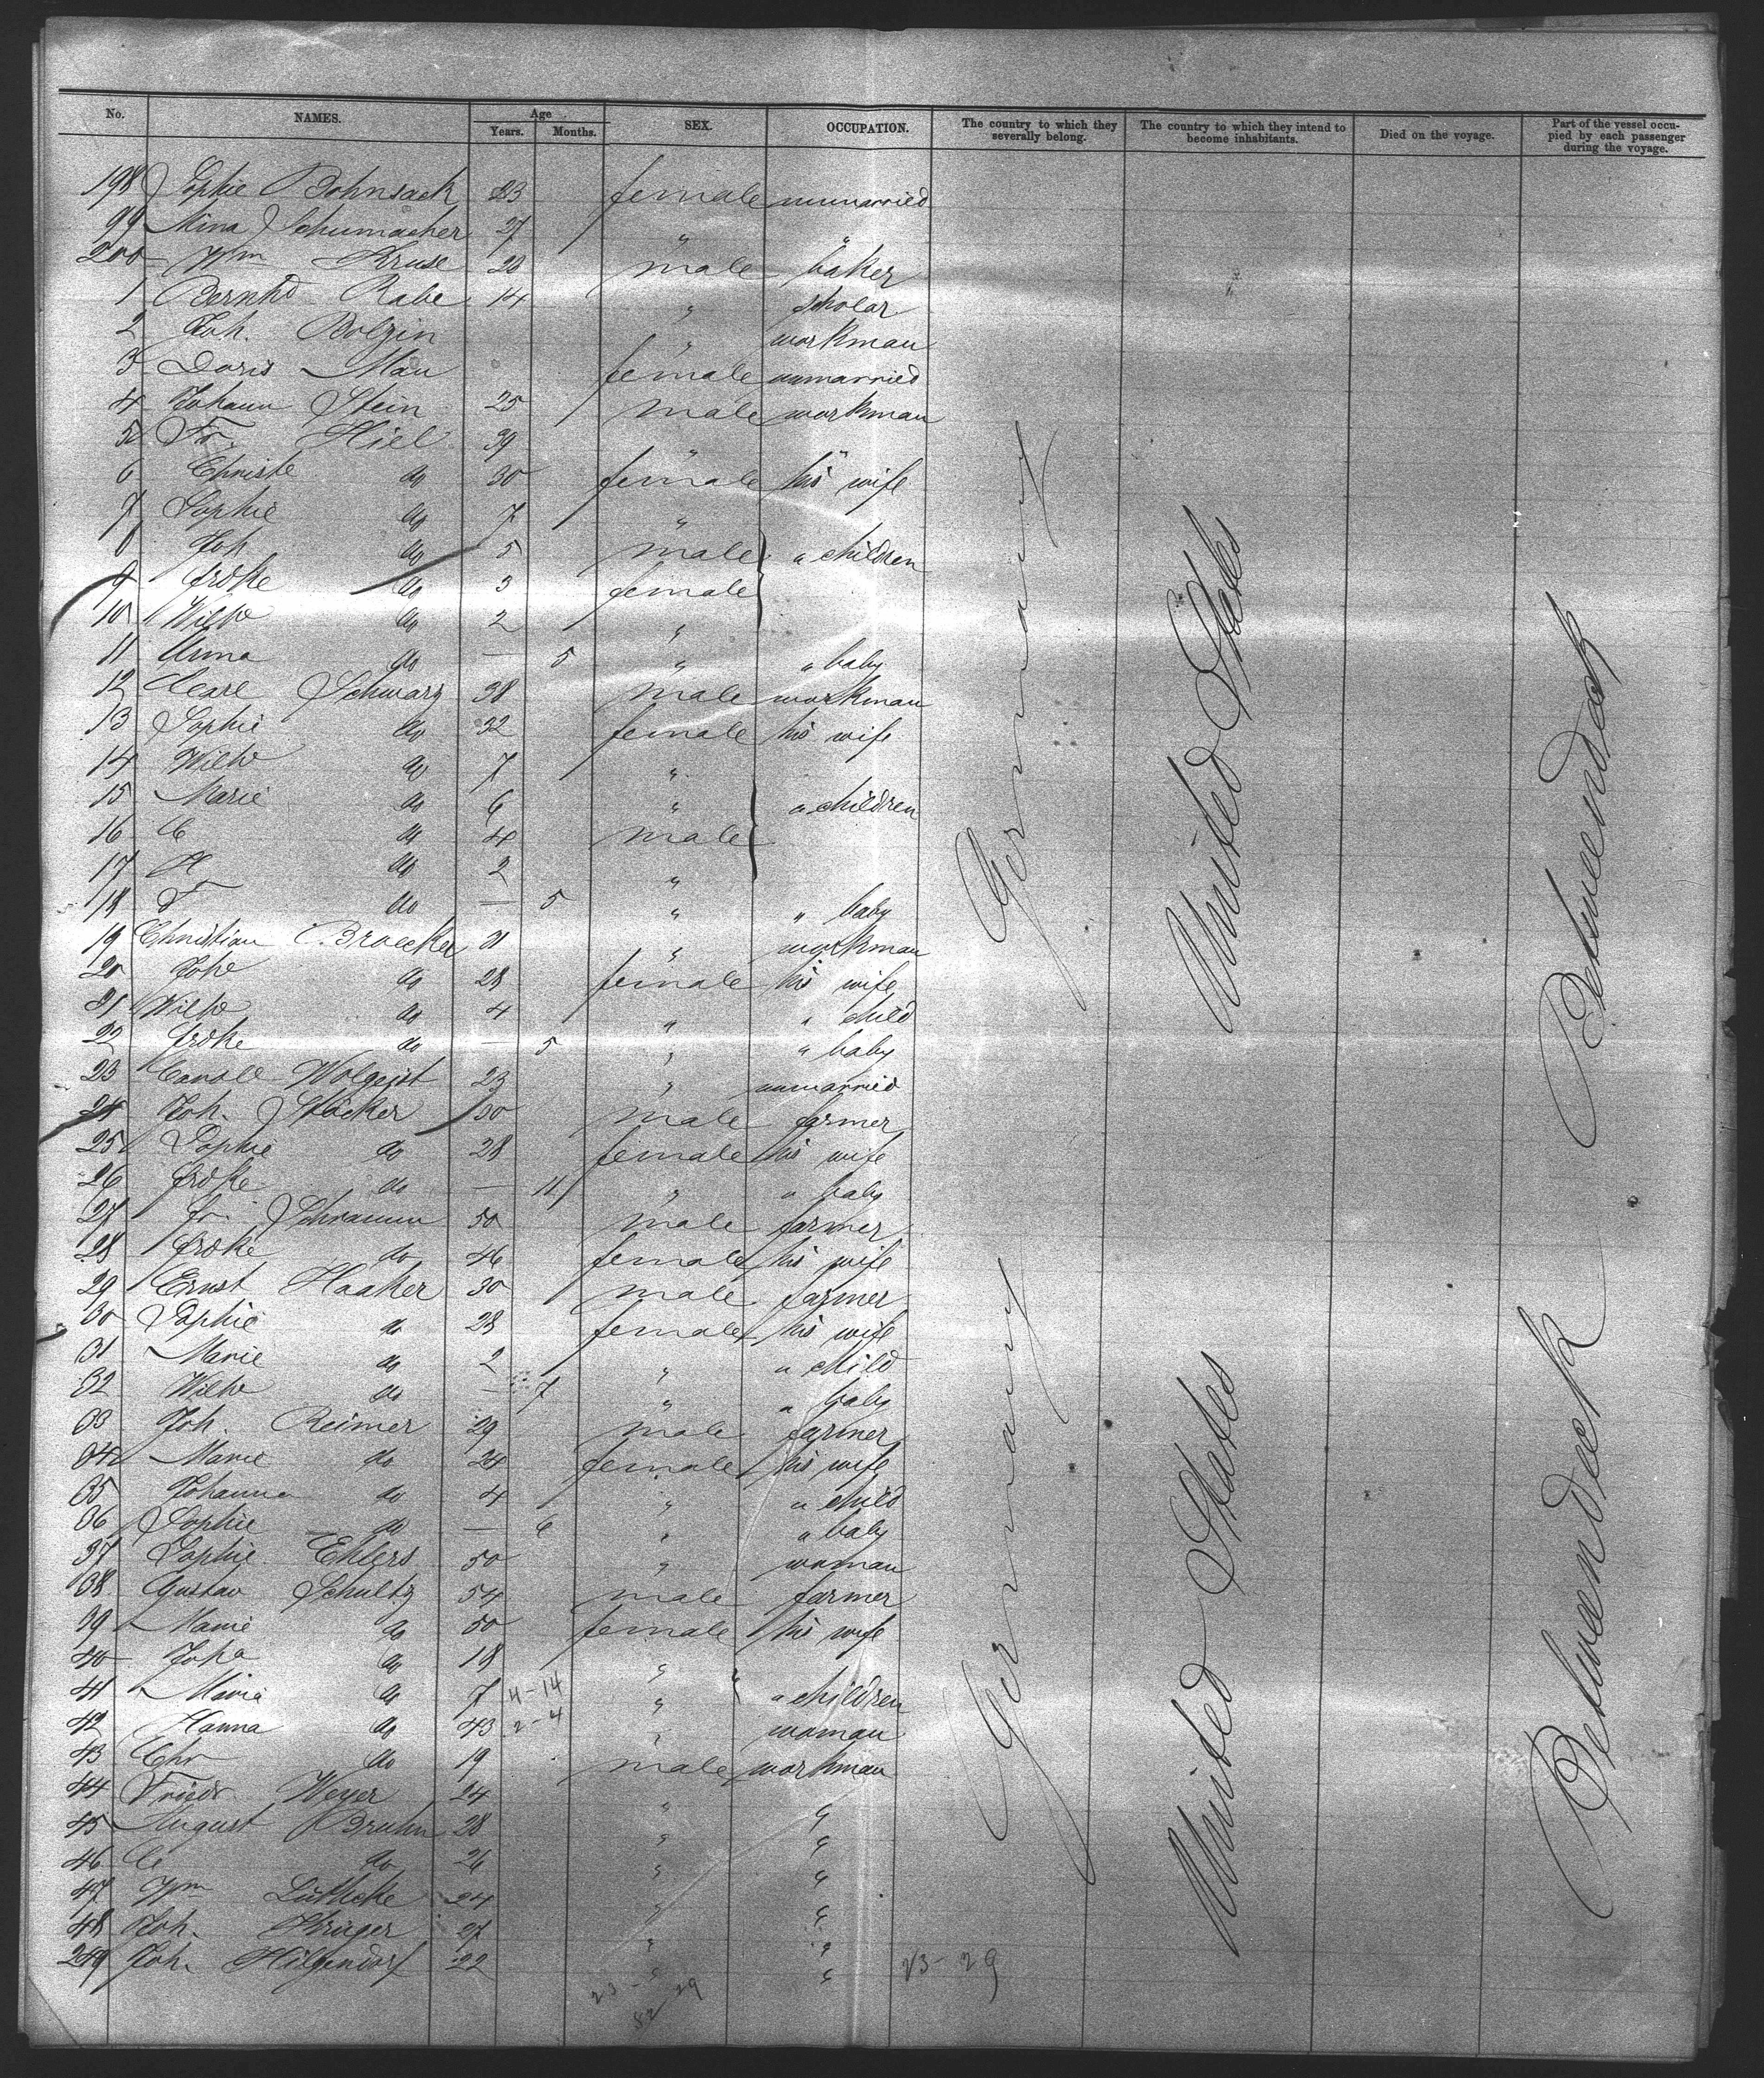 No. NAMES. Age Years. Months. SEX. OCCUPATION. The country to which they severally belong. The country to which they intend to become inhabitants. Died on the voyage. Part of the vessel occupied by each passenger during the voyage.
198 Sophie Bohnsack 23 female unmarried
99 Mina Schumacher 27 " "
200 Wm Kruse 20 male baker
1 Bernhd Rabe 14 " scholar
2 Joh. Bolzin " workman
3 Doris Mau female unmarried
4 Johann Stein 25 male workman
5 Fr. Hiel 39 " "
6 Christe do 30 female his wife
7 Sophie do 7 "
8 Joh do 5 male " children
9 Frdke do 3 female
10 Wilhe do 2 "
11 Anna do — 5 " " baby
12 Carl Schwarz 38 male workman
13 Sophie do 32 female his wife
14 Wilhe do 7 "
15 Marie do 6 " " children
16 C do 4 male
17 H do 2 "
18 F do — 5 " " baby
19 Christian Broecker 31 " workman
20 Johe do 28 female his wife
21 Wilhe do 4 " " child
22 Frdke do — 5 " " baby
23 Carole Wolgeist 23 " unmarried
24 Joh. Stäcker 30 male farmer
25 Sophie do 28 female his wife
26 Frdke do — 11 " " baby
27 Fr. Schramm 50 male farmer
28 Frdke do 46 female his wife
29 Ernst Haaker 30 male farmer
30 Sophie do 28 female his wife
31 Marie do 2 " " child
32 Wilhe do — 7 " " baby
33 Joh. Reimer 29 male farmer
34 Marie do 24 female his wife
35 Johanna do 4 " " child
36 Sophie do — 6 " " baby
37 Sophie Ehlers 50 " woman
38 Gustav Schultz 54 male farmer
39 Marie do 50 female his wife
40 Joha do 18 "
41 Maria do 7 4-14 " " children
42 Hanna do 43 2-4 " woman
43 Chr do 19 male workman
44 Friedr Weyer 24 " "
45 August Bruhn 28 " "
46 C do 26 " "
47 Wm Lüthcke 24 " "
48 Joh. Krüger 27 " "
249 Joh. Hilgendorf 22 " "
23-29
23- 29
52
Germany
United States
Betweendeck
Germany
United States
Betweendeck